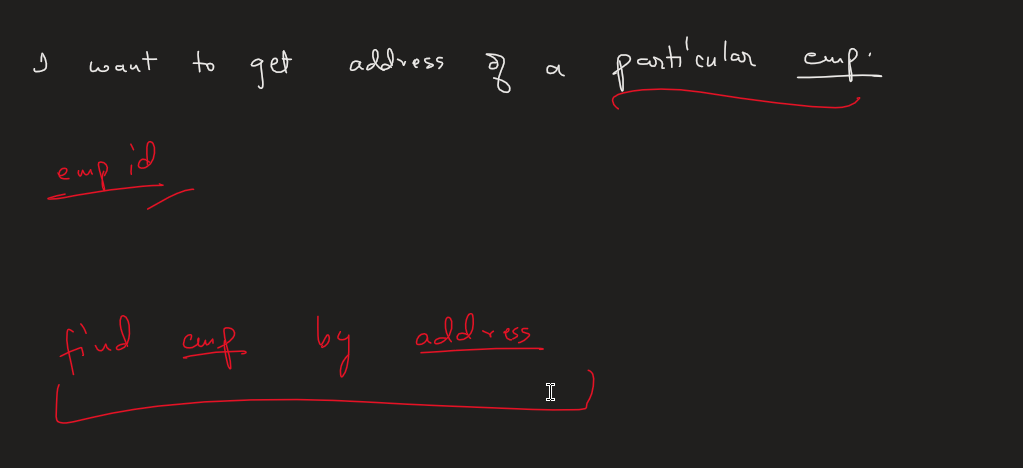 I want to get address of a particular emp.
emp id
find emp by address